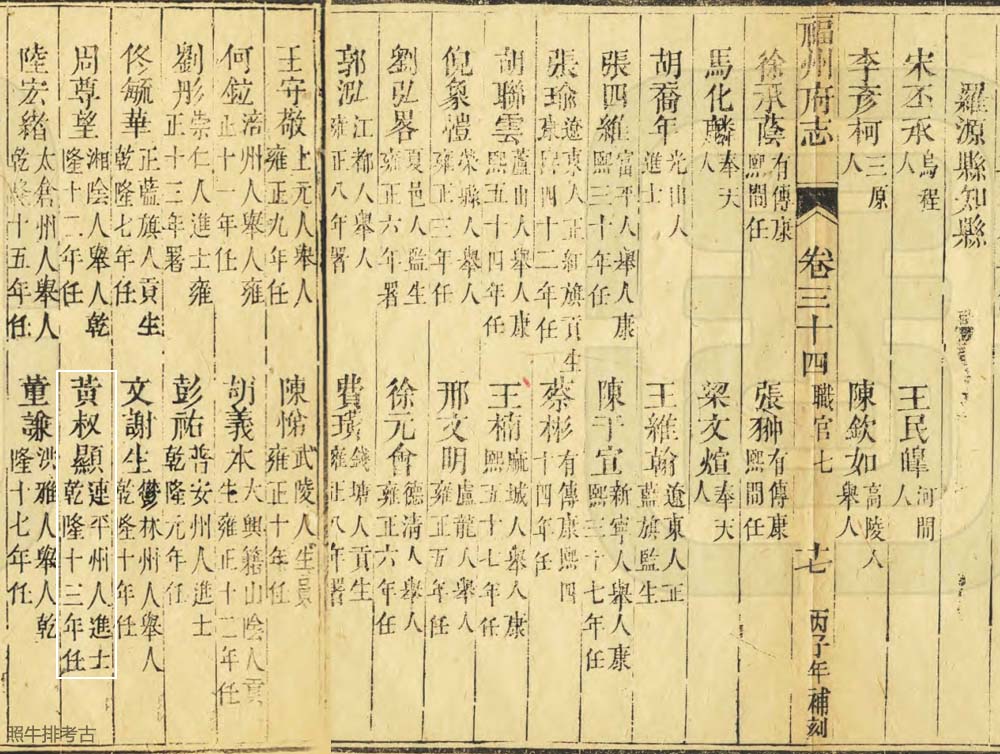 羅源縣知縣
宋丕承 烏程人 王民皡 河間人
李彥柯 三原人 陳欽如 高陵人舉人
福州府志 卷三十四 職官七 十七 丙子年補刻
徐承蔭 有傳康熙間任 張翀 有傳康熙間任
馬化麟 奉天人 梁文煊 奉天人
胡喬年 光山人進士 王維翰 遼東人正藍旗監生
張四維 富平人舉人康熙三十年任 陳于宣 新寧人舉人康熙三十七年任
張瑜 遼東人正紅旗貢生康熙四十二年任 蔡彬 有傳康熙四十四年任
胡聯雲 蘆山人舉人康熙五十四年任 王楠 麻城人舉人康熙五十七年任
倪象愷 榮縣人舉人雍正三年任 邢文明 盧龍人舉人雍正五年任
劉弘畧 夏邑人監生雍正六年署 徐元會 德清人舉人雍正六年任
郭泓 江都人舉人雍正八年署 費璜 錢塘人貢生雍正八年署
王守敬 上元人舉人雍正九年任 陳悌 武陵人生員雍正十年任
何 涪州人舉人雍正十一年任 胡義本 大興籍山陰人貢生雍正十二年任
劉彤 崇仁人進士雍正十三年署 彭祐 普安州人進士乾隆元年任
佟毓華 正藍旗人貢生乾隆七年任 文謝生 鬱林州人舉人乾隆十年任
周尊望 湘陰人舉人乾隆十二年任 黃叔顯 連平州人進士乾隆十三年任
陸宏緒 太倉州人舉人乾隆十五年任 董謙 洪雅人舉人乾隆十七年任
照牛排考古